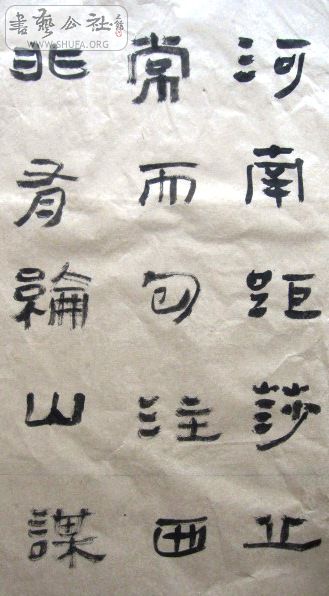 書藝公社
WWW.SHUFA.ORG
河南距莎丘
常而句注西
非有綸山謀